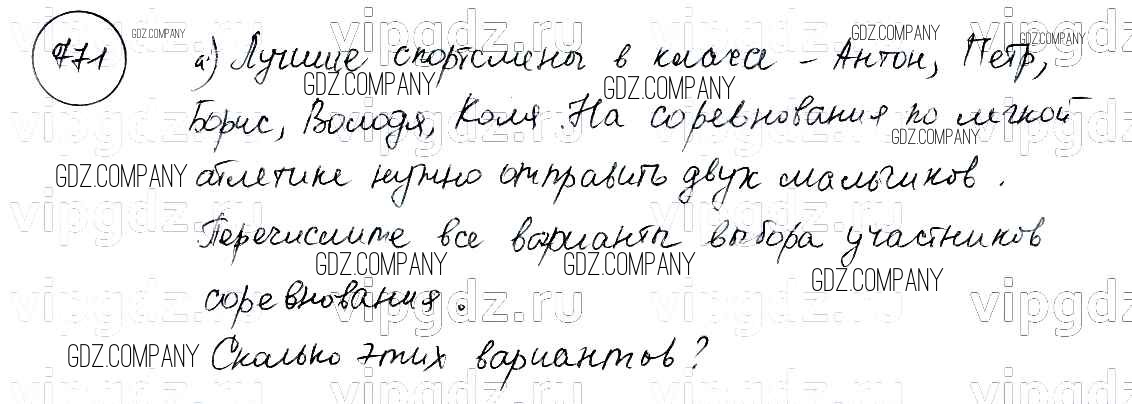 771 а) Лучшие спортсмены в классе – Антон, Петр,
Борис, Володя, Коля. На соревнования по легкой
атлетике нужно отправить двух мальчиков.
Перечислите все варианты выбора участников
соревнования.
Сколько этих вариантов?
GDZ.COMPANY
GDZ.COMPANY
GDZ.COMPANY
GDZ.COMPANY
GDZ.COMPANY
GDZ.COMPANY
GDZ.COMPANY
GDZ.COMPANY
GDZ.COMPANY
GDZ.COMPANY
GDZ.COMPANY
vipgdz.ru
vipgdz.ru
vipgdz.ru
vipgdz.ru
vipgdz.ru